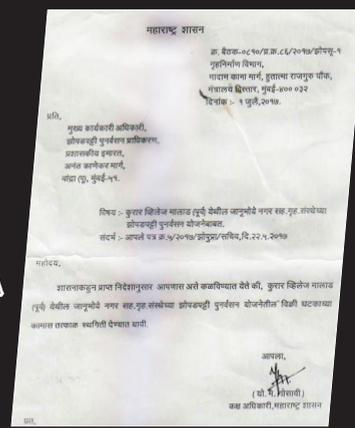 महाराष्ट्र शासन
क्र. बैठक-०८१०/प्र.क्र.८६/२०१७/झोपसू-१
गृहनिर्माण विभाग,
मादाम कामा मार्ग, हुतात्मा राजगुरु चौक,
मंत्रालय विस्तार, मुंबई-४०० ०३२
दिनांक :- १ जुलै,२०१७.
प्रति,
मुख्य कार्यकारी अधिकारी,
झोपडपट्टी पुनर्वसन प्राधिकरण,
प्रशासकीय इमारत,
अनंत काणेकर मार्ग,
वांद्रा (पू), मुंबई-५१.
विषय :- कुरार व्हिलेज मालाड (पूर्व) येथील जानूभोये नगर सह.गृह.संस्थेच्या
झोपडपट्टी पुनर्वसन योजनेबाबत.
संदर्भ :- आपले पत्र क्र.५/२०१७/झोपुप्रा/सचिव,दि.२२.५.२०१७
महोदय,
शासनाकडून प्राप्त निदेशानुसार आपणास असे कळविण्यात येते की, कुरार व्हिलेज मालाड
(पूर्व) येथील जानूभोये नगर सह.गृह.संस्थेच्या झोपडपट्टी पुनर्वसन योजनेतील विक्री घटकाच्या
कामास तत्काळ स्थगिती देण्यात यावी.
आपला,
(यो. म. गोसावी)
कक्ष अधिकारी,महाराष्ट्र शासन
प्रत,